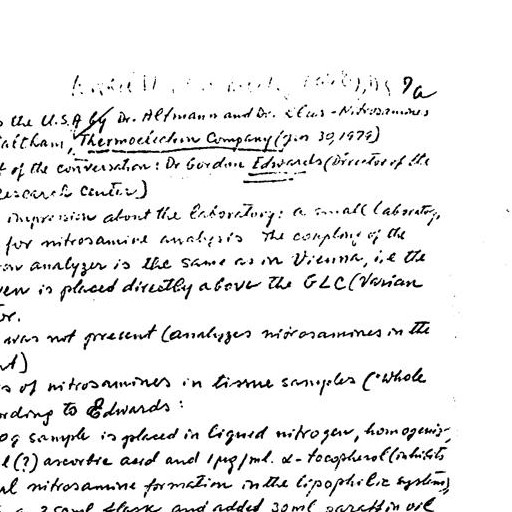 7a
the U.S.A by Dr. Altmann and Dr. Klus - Nitrosamines
Waltham, Thermoelectron Company (Jan 30, 1979)
of the conversation: Dr Gordon Edwards (Director of the
Research Center)
impression about the laboratory: a small laboratory,
for nitrosamine analysis The coupling of the
analyzer is the same as in Vienna, i.e the
is placed directly above the GLC (Varian
was not present (analyzes nitrosamines in the
of nitrosamines in tissue samples ("whole
to Edwards:
sample is placed in liquid nitrogen, homogeniz,
(?) ascorbic acid and 1µg/ml. α-tocopherol (inhibits
nitrosamine formation in the lipophilic system),
a 250ml flask and added 30ml paraffin oil